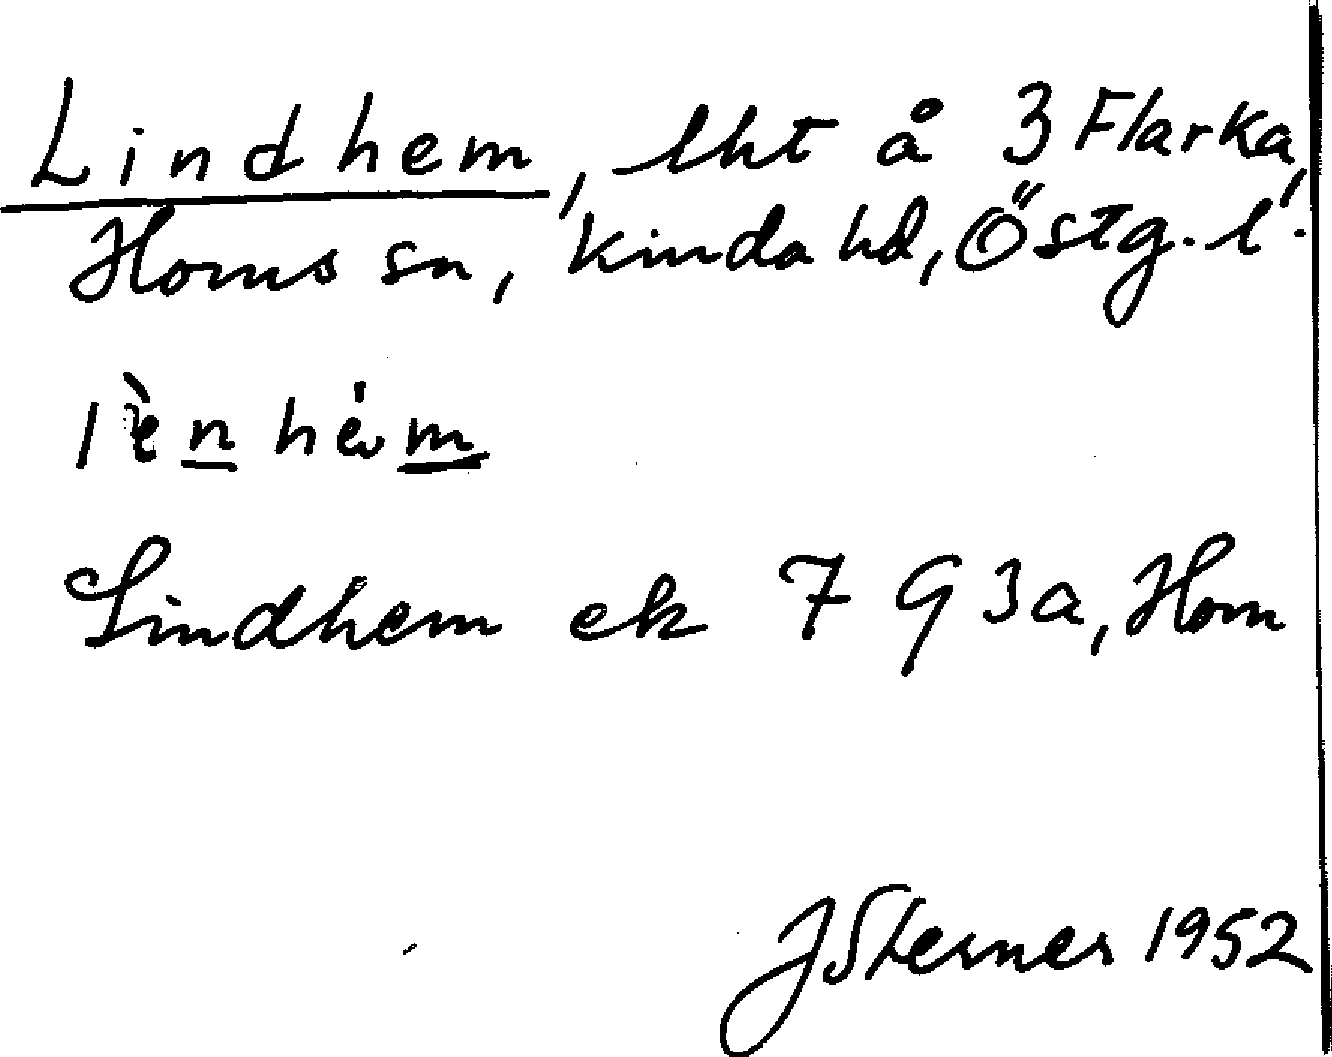 Lindhem, lht å 3 Flarka,
Horns sn, Kinda hd, Östg. l.
lèn hem
Lindhem ek 7 G 3a, Horn
J Sterner 1952